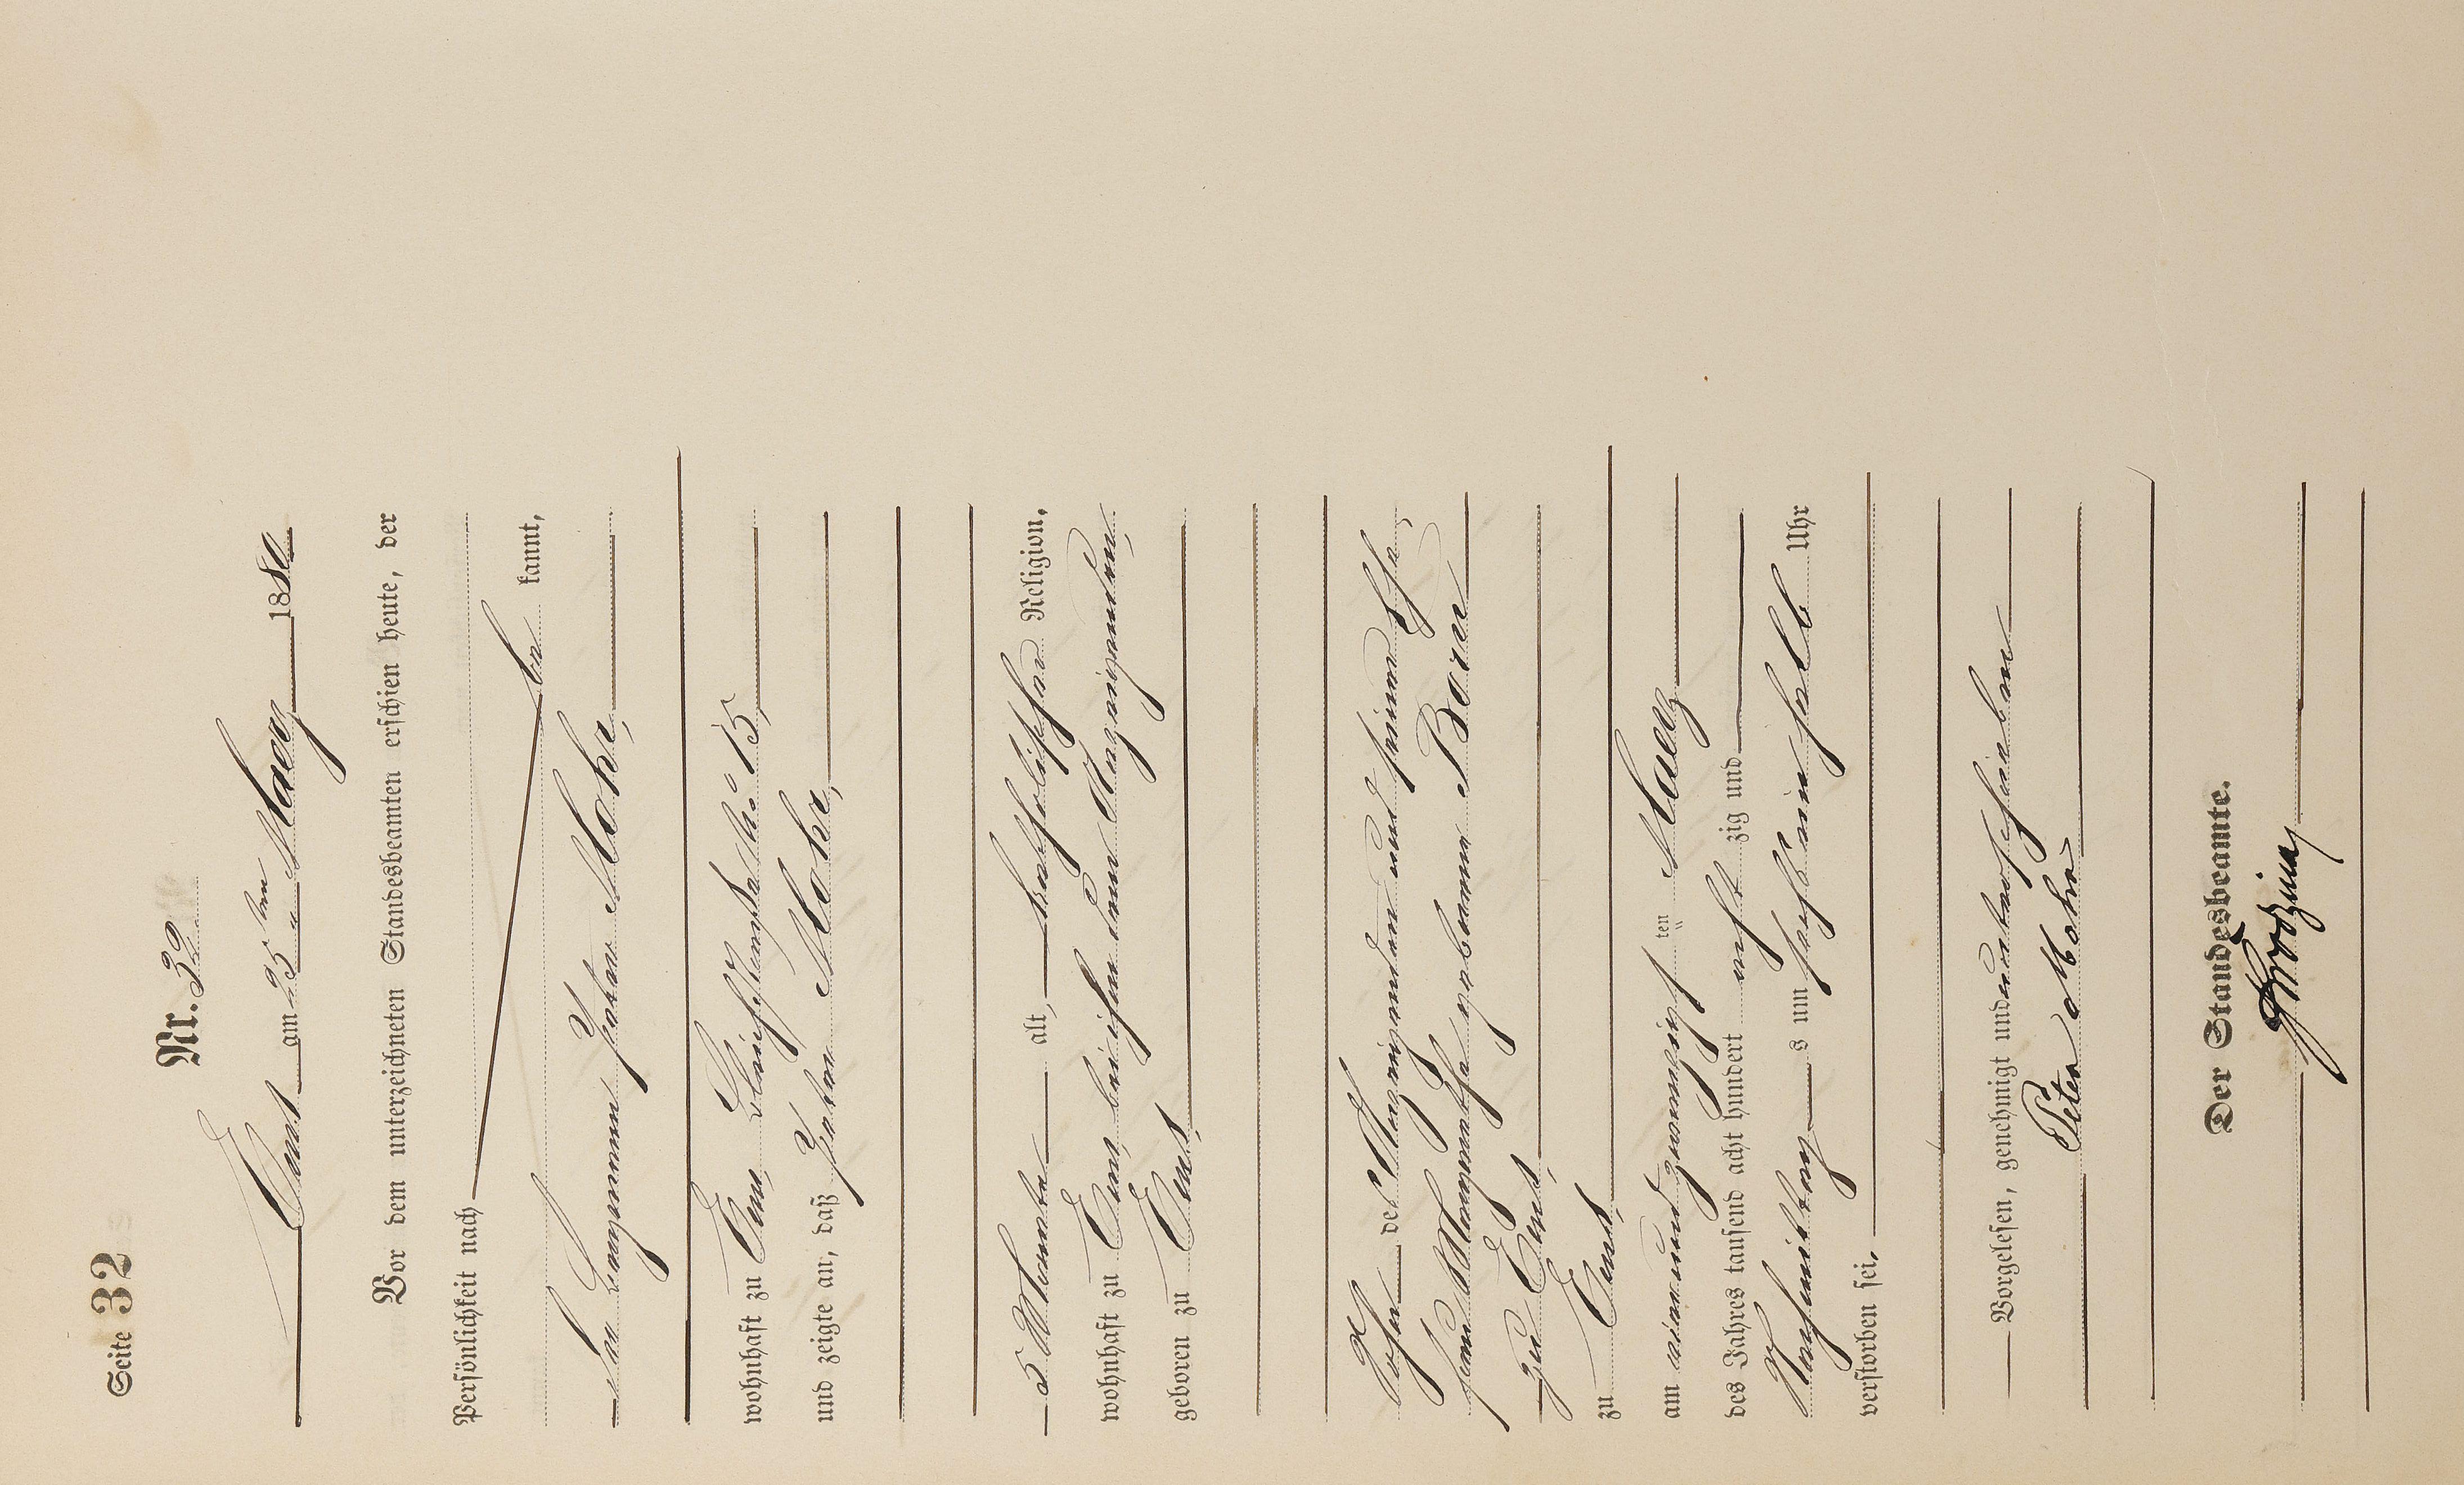 Seite 32
Nr. 32.
Ems am 25ten März 1880
Vor dem unterzeichneten Standesbeamten erschien heute, der
Persönlichkeit nach
be kannt,
der Bergmann Peter Mohr,
wohnhaft zu Ems, No 15,
und zeigte an, daß Peter Mohr,
5 Monate alt, katholischer Religion,
wohnhaft zu Ems bei ihm dem Anzeigenden,
geboren zu Ems,
Sohn des Anzeigenden und seiner Ehe,
frau Margaretha geborene Born
zu Ems,
zu Ems,
am vierundzwanzigsten März
des Jahres tausend acht hundert acht zig und
Nachmittag s um sechseinhalb Uhr
verstorben sei,
Vorgelesen, genehmigt und unterschrieben
Peter Mohr
Der Standesbeamte.